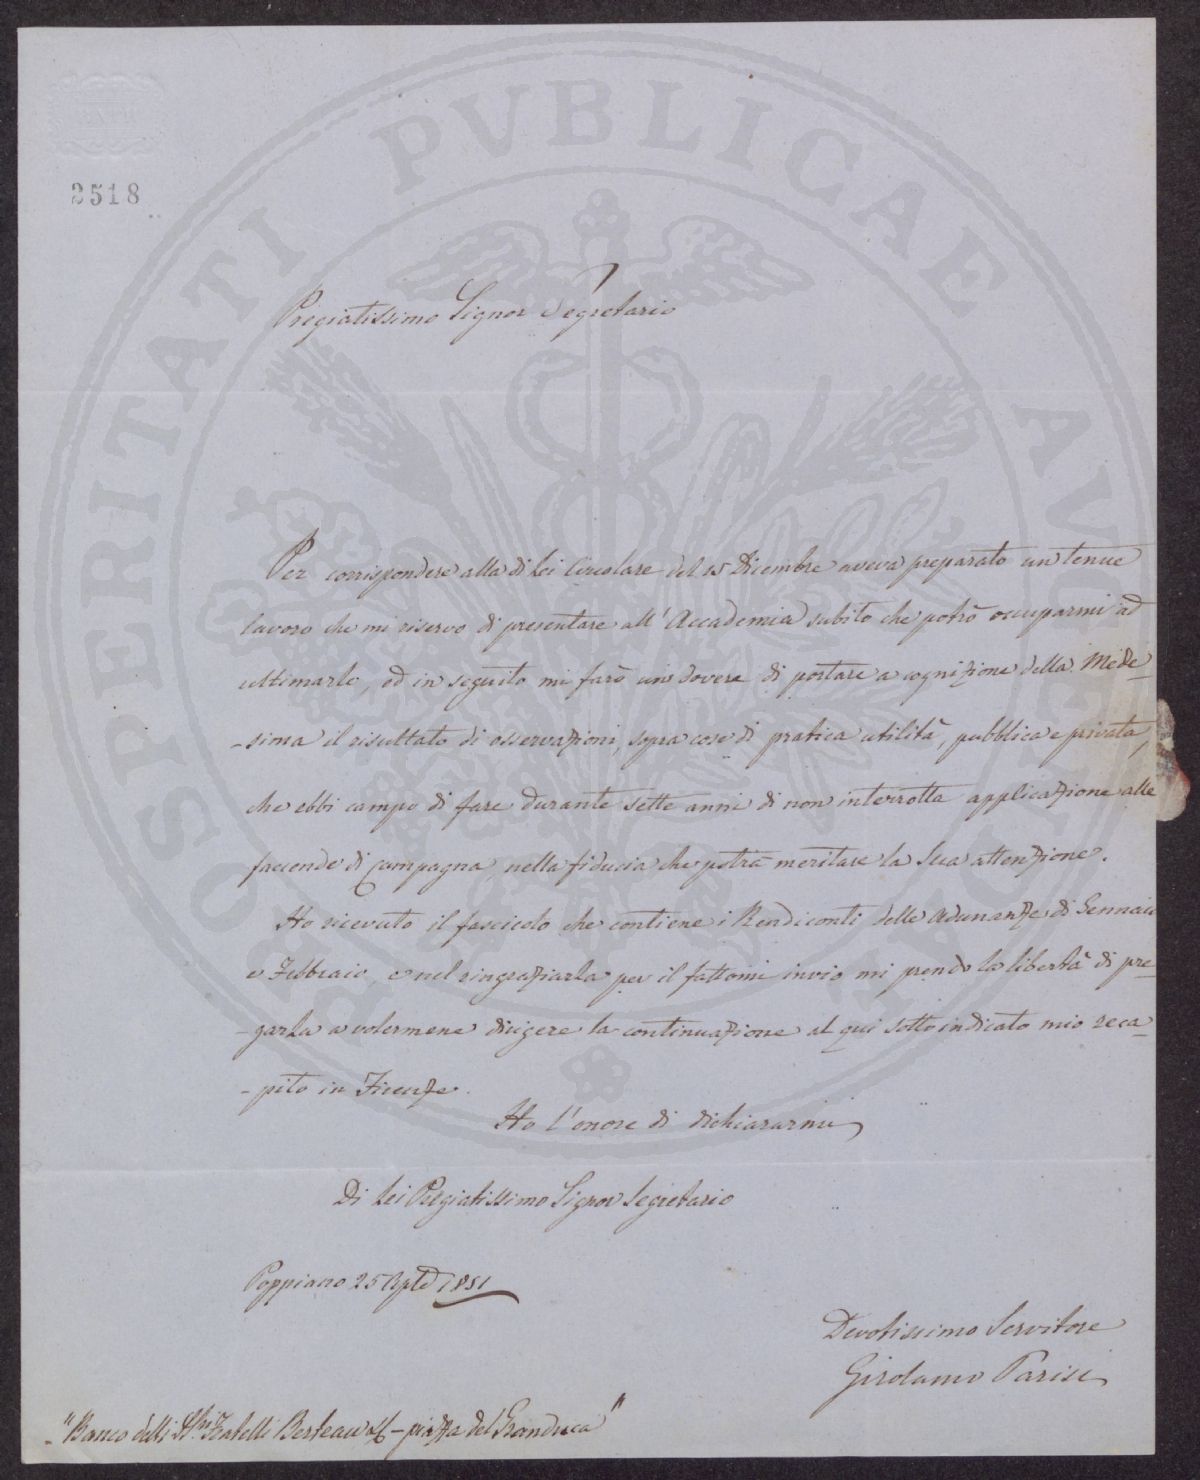 PROSPERITATI PVBLICAE AVGENDAE
2518
Pregiatissimo Signor Segretario
Per corrispondere alla di Lei Circolare del 15 Dicembre aveva preparato un tenue
lavoro che mi riservo di presentare all' Accademia subito che potrò occuparmi ad
ultimarlo, ed in seguito mi farò un dovere di portare a cognizione della Mede-
-sima il risultato di osservazioni, sopra cose di pratica utilità, pubblica e privata,
che ebbi campo di fare durante sette anni di non interrotta applicazione alle
faccende di Campagna, nella fiducia che potrà meritare la Sua attenzione.
Ho ricevuto il fascicolo che contiene i Rendiconti delle Adunanze di Gennaio
e Febbraio, e nel ringraziarla per il fattomi invio mi prendo la libertà di pre-
-garla a volermene dirigere la continuazione al qui sotto indicato mio reca-
-pito in Firenze.
Ho l'onore di dichiararmi
Di Lei Pregiatissimo Signor Segretario
Poppiano 25 1851
Devotissimo Servitore
Girolamo Parisi
"Banco delli SSri Fratelli - piazza del Granduca"